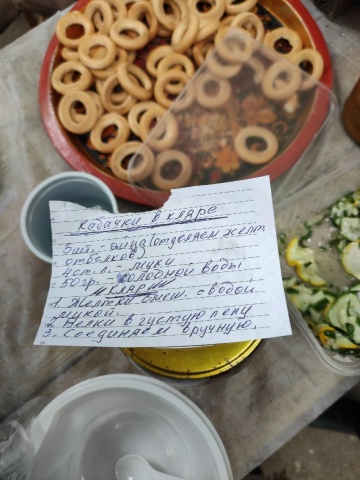 Кабачки в кляре
5шт. - яйца (отделяем желт.
от белков)
4 ст.л. - муки
50гр. - холодной воды
Кляр
1. Желтки смеш. с водой
мукой.
2. Белки в густую пену
3. Соединяем вручную.